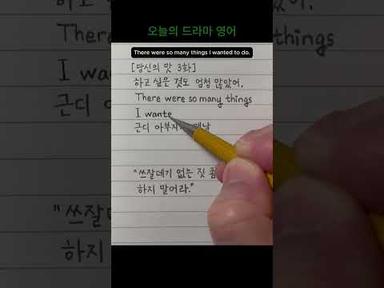 오늘의 드라마 영어
There were so many things I wanted to do.
[당신의 맛 3화]
하고 싶은 것도 엄청 많았어,
There were so many things
I wante
근디 맨날
“쓰잘데기 없는 짓
하지 말어라.”